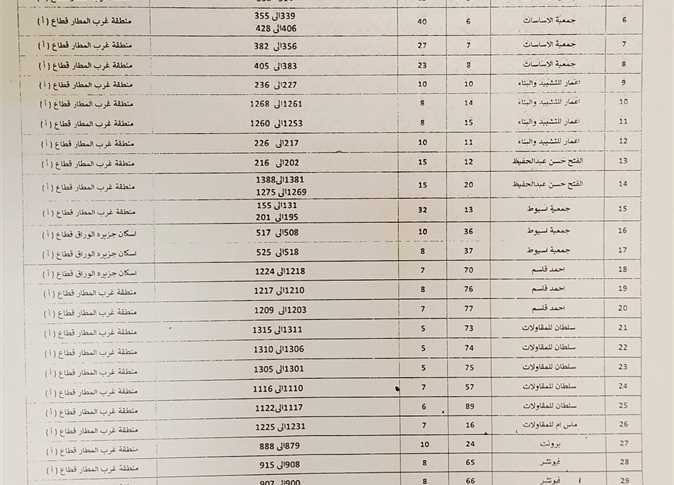 6 جمعية الاساسات 6 40 339الى 355 منطقة غرب المطار قطاع ( أ )
406الى 428
7 جمعية الاساسات 7 27 356الى 382 منطقة غرب المطار قطاع ( أ )
8 جمعية الاساسات 8 23 383الى 405 منطقة غرب المطار قطاع ( أ )
9 اعمار للتشييد والبناء 10 10 227الى 236 منطقة غرب المطار قطاع ( أ )
10 اعمار للتشييد والبناء 14 8 1261الى 1268 منطقة غرب المطار قطاع ( أ )
11 اعمار للتشييد والبناء 15 8 1253الى 1260 منطقة غرب المطار قطاع ( أ )
12 اعمار للتشييد والبناء 11 10 217الى 226 منطقة غرب المطار قطاع ( أ )
13 الفتح حسن عبدالحفيظ 12 15 202الى 216 منطقة غرب المطار قطاع ( أ )
14 الفتح حسن عبدالحفيظ 20 15 1381الى1388 منطقة غرب المطار قطاع ( أ )
1269الى 1275
15 جمعية اسيوط 13 32 131الى 155 منطقة غرب المطار قطاع ( أ )
195الى 201
16 جمعية اسيوط 36 10 508الى 517 اسكان جزيره الوراق قطاع ( أ )
17 جمعية اسيوط 37 8 518الى 525 اسكان جزيره الوراق قطاع ( أ )
18 احمد قاسم 70 7 1218الى 1224 اسكان جزيره الوراق قطاع ( أ )
19 احمد قاسم 76 8 1210الى 1217 منطقة غرب المطار قطاع ( أ )
20 احمد قاسم 77 7 1203الى 1209 منطقة غرب المطار قطاع ( أ )
21 سلطان للمقاولات 73 5 1311الى 1315 منطقة غرب المطار قطاع ( أ )
22 سلطان للمقاولات 74 5 1306الى 1310 منطقة غرب المطار قطاع ( أ )
23 سلطان للمقاولات 75 5 1301الى 1305 منطقة غرب المطار قطاع ( أ )
24 سلطان للمقاولات 57 7 1110الى 1116 منطقة غرب المطار قطاع ( أ )
25 سلطان للمقاولات 89 6 1117الى1122 منطقة غرب المطار قطاع ( أ )
26 ماس ام للمقاولات 16 7 1231الى 1225 منطقة غرب المطار قطاع ( أ )
27 برونت 24 10 879الى 888 منطقة غرب المطار قطاع ( أ )
28 فيوتشر 65 8 908الى 915 منطقة غرب المطار قطاع ( أ )
29 فيوتشر 66 8 900الى 907 منطقة غرب المطار قطاع ( أ )